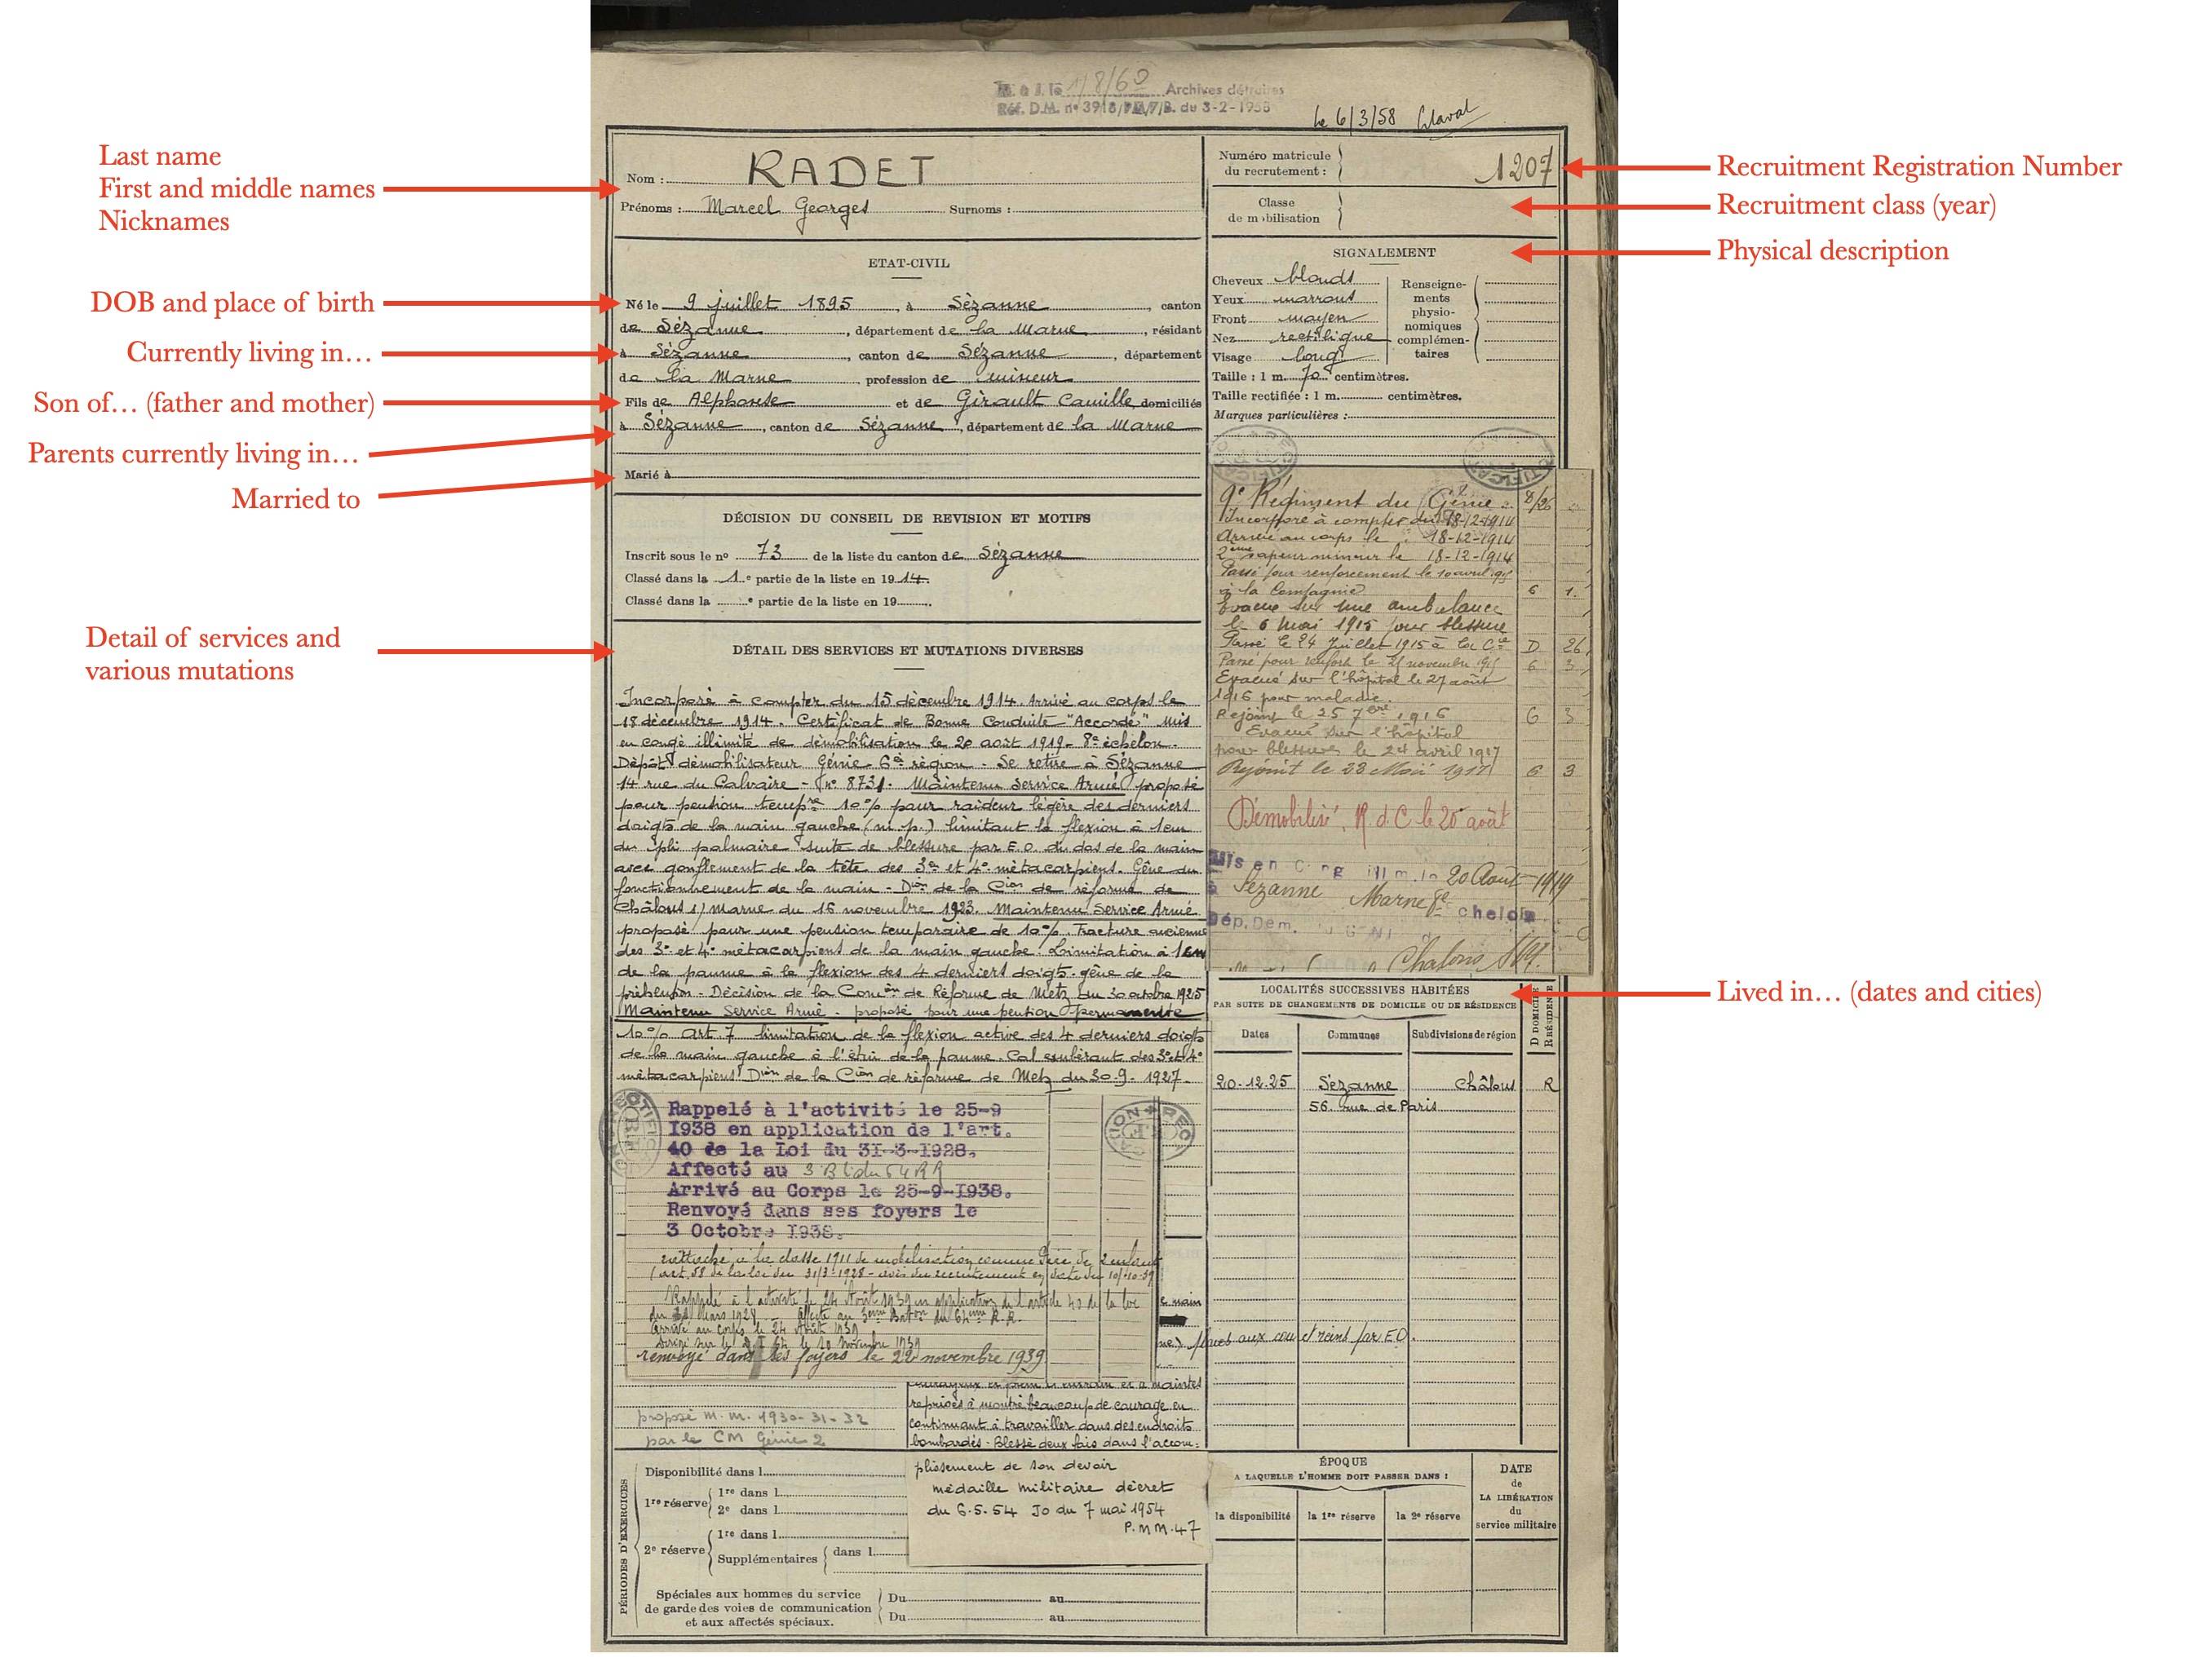 Last name
First and middle names
Nicknames
DOB and place of birth
Currently living in…
Son of… (father and mother)
Parents currently living in…
Married to
Detail of services and
various mutations
Recruitment Registration Number
Recruitment class (year)
Physical description
Lived in… (dates and cities)
1/8/60 Archives détruites
Réf. D.M. n° du 3-2-1958
le 6/3/58
Nom : RADET
Prénoms : Marcel Georges Surnoms :
Numéro matricule
du recrutement : 1207
Classe
de mobilisation
ETAT-CIVIL
Né le 9 juillet 1895, à Sèzanne, canton
de Sèzanne, département de la Marne, résidant
à Sèzanne, canton de Sézanne, département
de la Marne, profession de mineur
Fils de Alphonse et de Girault Camille domiciliés
à Sézanne, canton de Sézanne, département de la Marne
Marié à
DÉCISION DU CONSEIL DE REVISION ET MOTIFS
Inscrit sous le n° 73 de la liste du canton de Sézanne
Classé dans la 1e partie de la liste en 1914.
Classé dans la e partie de la liste en 19
DÉTAIL DES SERVICES ET MUTATIONS DIVERSES
Incorporé à compter du 15 décembre 1914. Arrivé au corps le
18 décembre 1914. Certificat de Bonne Conduite "Accordé" Mis
en congé illimité de démobilisation le 20 août 1919 - 8e échelon.
Dépôt démobilisateur Génie 6e région. Se retire à Sézanne
14 rue du Calvaire - n° 8731. Maintenu Service Armé proposé
pour pension tempre 10% pour raideur légère des derniers
doigts de la main gauche (m.p.) limitant la flexion à 1cm
du pli palmaire suite de blessure par E.O. du dos de la main
avec gonflement de la tête des 3e et 4e métacarpiens. Gêne du
fonctionnement de la main - Dion de la Cion de réforme de
Châlons s/ Marne du 16 novembre 1923. Maintenu Service Armé
proposé pour une pension temporaire de 10%. Fracture ancienne
des 3e et 4e métacarpiens de la main gauche. Limitation à 1cm
de la paume à la flexion des 4 derniers doigts. gêne de la
préhension - Décision de la Comion de Réforme de Metz du 30 octobre 1925
Maintenu Service Armé - proposé pour une pention permanente
10% art. 7 limitation de la flexion active des 4 derniers doigts
de la main gauche à de la paume. Cal exubérant des 3e et 4e
métacarpiens Dion de la Cion de réforme de Metz du 30-9-1927.
Rappelé à l'activité le 25-9
1938 en application de l'art.
40 de la Loi du 31-3-1928.
Affecté au
Arrivé au Corps le 25-9-1938.
Renvoyé dans ses foyers le
3 Octobre 1938.
rattaché à la classe 1911 de mobilisation comme Père de 2 enfants
(art. 58 de la loi du 31/3/1928 - avis du recrutement en date du 10-10-39
Rappelé à l'activité le 24 Août 1939 en application de l'article 40 de la loi
du 31 Mars 1928 Affecté au 3ème Baton du 64ème R.R.
Arrivé au corps le 24 Août 1939
le 20 Novembre 1939
renvoyé dans ses foyers le 22 novembre 1939
main
et reins par E.O.
proposé M.M. 1930-31-32
par le CM Génie 2
courageux et a maintes
reprises à montré beaucoup de courage en
continuant à travailler dans des endroits
bombardés - Blessé deux fois dans l'accom-
plissement de son devoir
médaille militaire décret
du 6.5.54 Jo du 7 mai 1954
P.MM.47
PÉRIODES D'EXERCICES
Disponibilité dans l
1re réserve 1re dans l
2e dans l
2e réserve 1re dans l
Supplémentaires dans l
Spéciales aux hommes du service
de garde des voies de communication
et aux affectés spéciaux.
Du au
Du au
SIGNALEMENT
Cheveux blonds
Yeux marrons
Front moyen
Nez rectiligne
Visage long
Renseigne-
ments
physio-
nomiques
complémen-
taires
Taille : 1 m. 70 centimètres.
Taille rectifiée : 1 m. centimètres.
Marques particulières :
9e Régiment du Génie 8/26
Incorporé à compter du 18-12-1914
Arrivé au corps le : 18-12-1914
2ème sapeur mineur le 18-12-1914
Passé pour renforcement le 10 avril 1915
à la Compagnie 6 1
Evacué sur une ambulance
le 6 mai 1915 pour blessure
Passé le 24 Juillet 1915 à la Cie D 26
Passé pour renfort le 25 novembre 1915 6 3
Evacué sur l'hôpital le 27 août
1916 pour maladie
Rejoint le 25 7bre 1916 6 3
Evacué sur l'hôpital
pour blessures le 24 avril 1917
Rejoint le 28 Mai 1917 6 3
Démobilisé, R.d.C le 20 août
Mis en Cong illim. le 20 Août 1919
à Sézanne Marne 8e échelon
Dép. Dém.
Chalons S/M.
LOCALITÉS SUCCESSIVES HABITÉES
PAR SUITE DE CHANGEMENTS DE DOMICILE OU DE RÉSIDENCE
D DOMICILE
R RÉSIDENCE
Dates Communes Subdivisions de région
20-12-25 Sézanne Châlons R
56. rue de Paris
ÉPOQUE
A LAQUELLE L'HOMME DOIT PASSER DANS :
la disponibilité la 1re réserve la 2e réserve
DATE
de
LA LIBÉRATION
du
service militaire